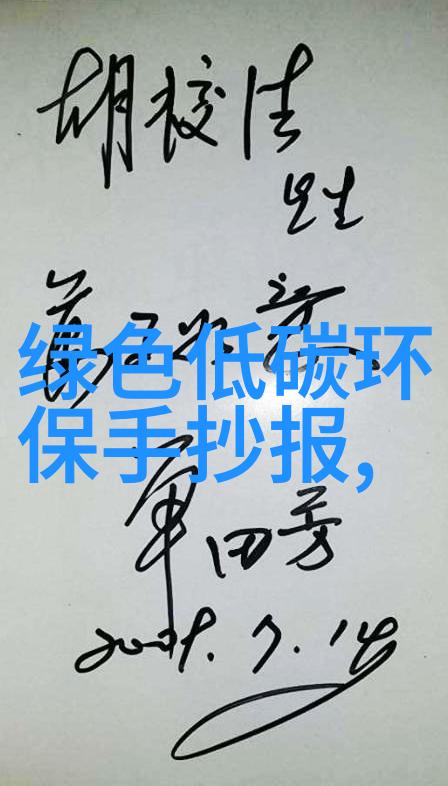 胡校佳
先生
绿色低碳环
保手抄报,
单田芳
2007.7.14